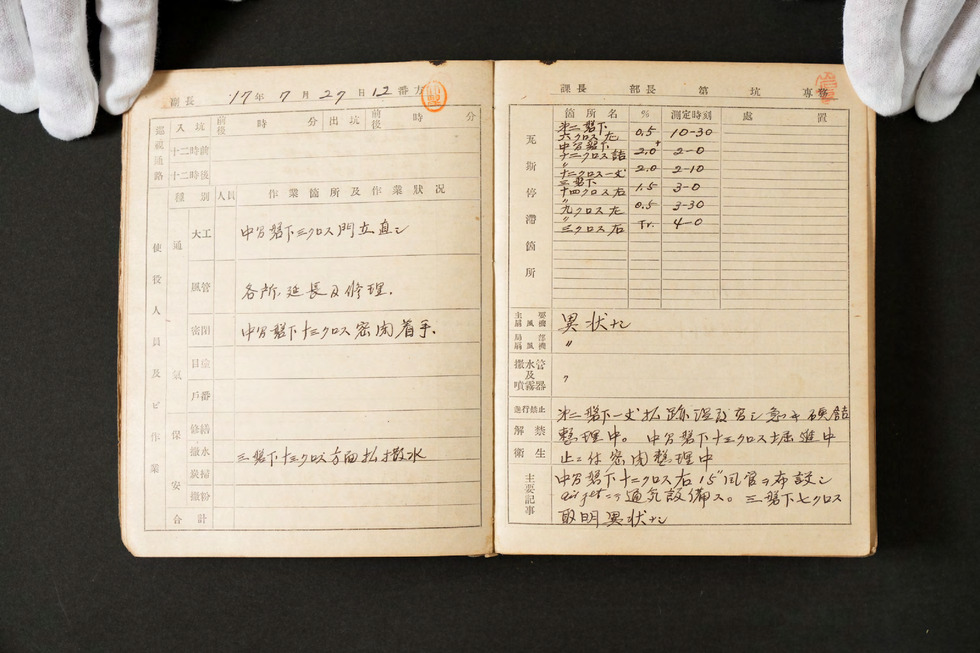 副長 17年7月27日12番方
巡視通路 入坑 前後 時 分 出坑 前後 時 分
十二時前
十二時後
種別 人員 作業箇所及作業状況
使役人員及ビ作業
通気
大工 中分盤下三クロス門立直シ
風管 各所延長及修理.
密閉 中分盤下十三クロス密閉着手.
目塗
戸番
保安
修繕
撒水 三盤下十三クロス方面払撒水
炭掃
撒粉
合計
課長 部長 第 坑 専務
瓦斯停滞箇所
箇所名 % 測定時刻 処置
第二盤下
六クロス左 0.5 10-30
中分盤下
十二クロス詰 2.0+ 2-0
〃
十二クロス一丈 2.0 2-10
三盤下
十四クロス右 1.5 3-0
〃
九クロス左 0.5 3-30
〃
三クロス右 Tr. 4-0
主要扇風機 異状ナシ
局部扇風機 〃
撒水管及噴霧器 〃
進行禁止 第二盤下一丈払跡
解禁 整理中。 中分盤下十三クロス掘進中
衛生 止ニ付密閉整理中
主要記事 中分盤下十二クロス右15"風管ヲ布設シ
air jetニテ通気設備ス。三盤下七クロス
異状ナシ